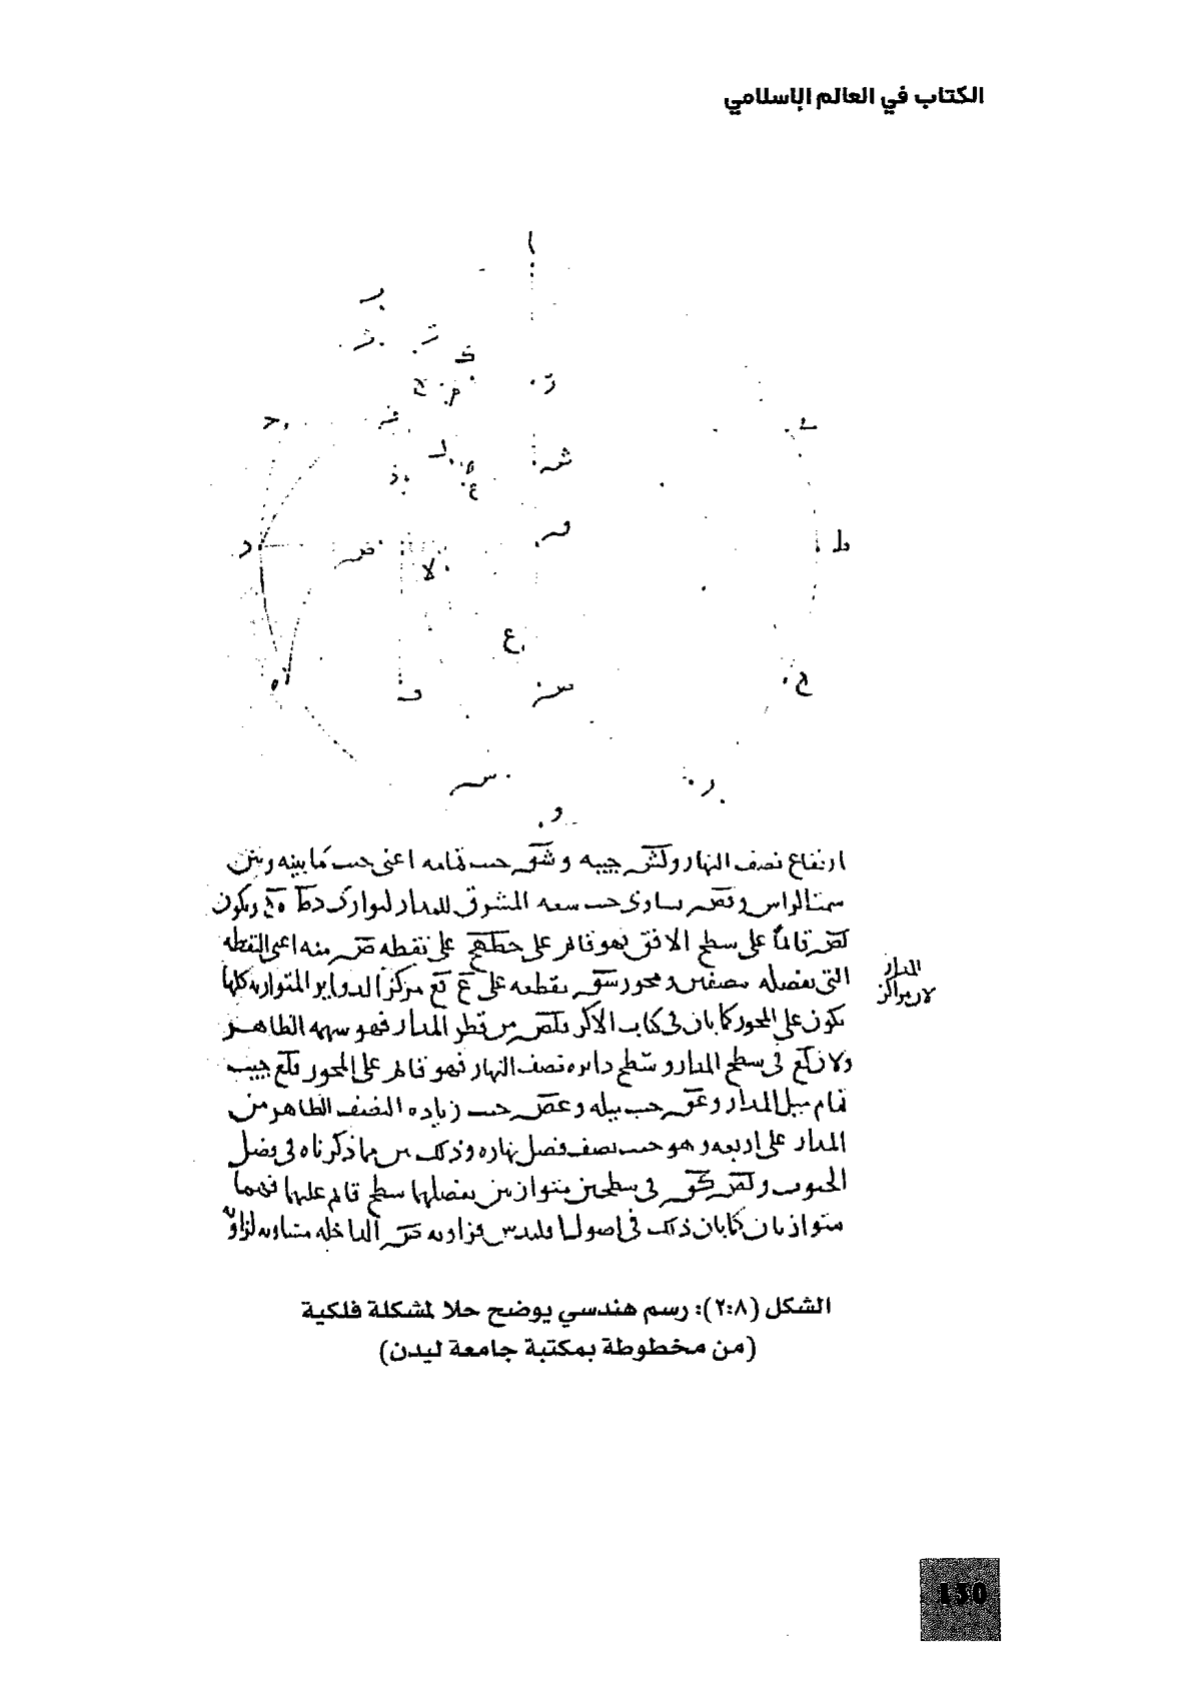 الكتاب في العالم الإسلامي
ا
ب
ث ت
ك
ح م ز
ح
ل ش
ذ ع
د ص لا ق ط
ع
ه ف س ج
س ر
و
ارتفاع نصف النهار ولش جيبه وشق حب تمامه اعنى حب مابينه وبين
سمت الراس و تص ساوى حب سعه المشرق للمدار لتوازى
قائما على سطح الافق فهو قائم على على نقطه منه اعنى النقطه
المدار
التى بفصله بنصفين و محور سق بقطعه على ع مركز الدواير المتوازيه كلها
لان مراكز
تكون على المحور كما بان فى كتاب الاكر من قطر المدار فهو سهمه الظاهر
ولان كع فى سطح المدار و سطح دائره نصف النهار فهو قائم على المحور فكع جيب
تمام ميل المدار و عق حب ميله و عص حب زياده النصف الظاهر من
المدار على اربعه و هو حب نصف فضل نهاره وذلك بين مما ذكرناه فى فصل
الجيوب و لص كق فى سطحين متوازيين بفصلهما سطح قائم عليهما فهما
متوازيان كما بان ذلك فى اصول اقليدس فزاويه الداخله مساويه لزاويه
الشكل (٢:٨): رسم هندسي يوضح حلا لمشكلة فلكية
(من مخطوطة بمكتبة جامعة ليدن)
150